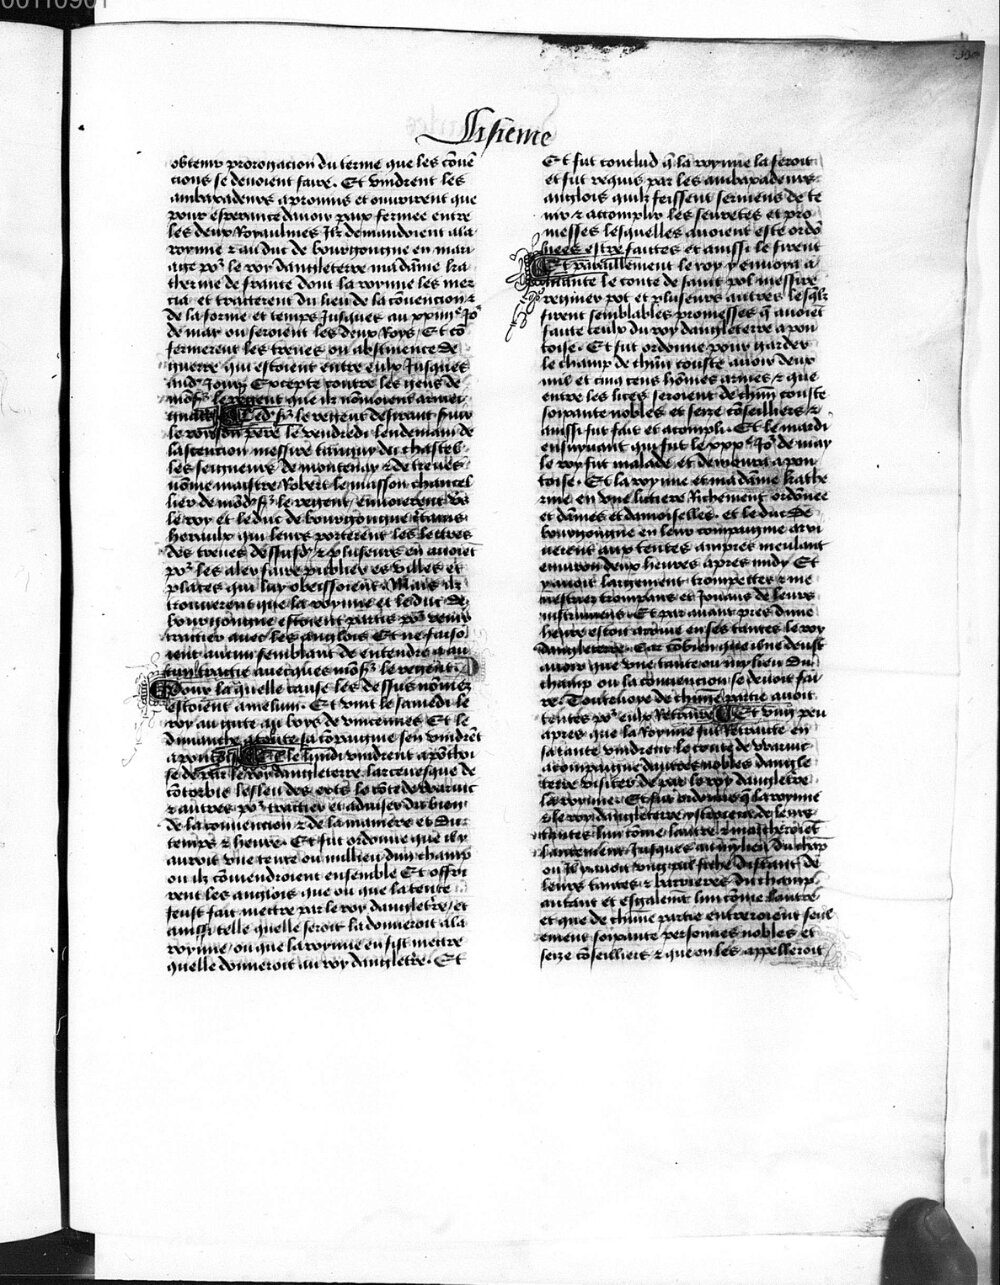 Sisieme
obtenir prorogacion du terme que les cōuē
cions se devoient faire. Et vindrent les
ambaxadeurs a prouins et ouurirent que
pour esperance dauoir paix fermee entre
les deux Royaulmes Ilz demandoient a la
royne & au duc de bourgongne en mari
age por le roy dangleterre ma dame ka
therine de france dont la royne les mer
cia et traicterent du lieu de la cōuencion &
de la forme et temps Jusques au xxiiije Jor
de may ou seroient les deux Roys. Et cō
fermerent les treues ou abstinence de
guerre qui estoient entre eulx Jusques
aud Jour Excepte contre les gens de
mōsr le regent que ilz nōmoient armei
gnacz Et led sr le regent desirant suir
le roy son pere le vendredi lendemain de
lascencion messire tanguy du chastel
les seigneurs de montenay & de treues
nōme maistre Robert le masson chancel
lier de mōdsr le regent enuoierent vs
le roy et le duc de bourgongne
heraulx qui leurs porterent les lettres
des treues dessusd & plusieurs en auoiēt
por les aler faire publier es villes et
places qui luy obeissoient. Mais ilz
trouuerent que la royne et le duc de
bourgongne estoient partis por venir
traictier auec les anglois Et ne faiso
ient aucun semblant de entendre a au
cun traictie auecques mōsr le regent
Pour la quelle cause les dessus nōmez
estoient a melun. Et vint le samedi le
roy au giste au boys de vincennes Et le
dimanche a toute sa cōpaignie sen vindrēt
a pontoise Et le lundi vindrent a pōthoi
se de par le roy dangleterre larceuesque de
cōtorbie lesleu des exts le cōte de waruic
& autres por traictier et aduiser du bien
de la conuencion & de la maniere et du
temps & heure. Et fut ordonne que il y
auroit vne tente ou millieu dun champ
ou ilz conuendroient ensemble Et offri
rent les anglois que ou que la tente
feust fait mettre par le roy dangletre/ et
aussi telle quelle seroit la donneroit a la
royne/ ou que la royne en fist mettre
quelle donneroit au roy dangletre. Et
Et fut conclud q la royne la feroit
et fut requis par les ambaxadeurs
anglois quilz feissent sermens de te
nir & accomplir les seuretes et pro
messes lesquelles auoient este ordō
nees estre faictes et aussi le firent
Et pareillement le roy y enuoya a
mante le conte de saint pol messire
regnier pot et plusieurs autres lesqlz
firent semblables promesses q auoiēt
faicte ceulx du roy dangleterre a pon
toise. Et fut ordonne pour garder
le champ de chūn couste auoir deux
mil et cinq cens hōmes armes & que
entre les lices seroient de chūn couste
soixante nobles et seize cōseilliers &
aussi fut fait et acompli. Et le mardi
ensuyuant qui fut le xxxe Jor de may
le roy fut malade et demoura a pon
toise. Et la royne et ma dame kathe
rine en vne lictiere Richement ordōnee
et dames et damoiselles. et le duc de
bourgongne en leur compaignie arri
uerent aux tentes aupres meulant
enuiron deux heures apres midy Et
y auoit largement trompettes & me
nestrez trompans et Jouans de leurs
instrumens. Et par auant pres dune
heure estoit arriue en ses tantes le roy
dangleterre. Car cōbien que il ne deust
auoir que vne tante ou mylieu du
champ ou la conuencion se deuoit fai
re. Toutesuoye de chūne partie auoit
tentes por eulx Retraire Et vng peu
apres que la Royne fut Retraicte en
sa tante vindrent le conte de waruic
acompaigne dautres nobles dangle
terre visiter de par le roy dangletre
la royne. Et fut ordonne q la royne
& le roy dangleterre ystroient de leurs
tantes lun cōme lautre & marcheroiēt
Jusques au mylieu du chāp
ou Il y auoit vng pal fiche distant de
leurs tantes & barrieres du champ
autant et esgalemt lun cōme lautre
et que de chūne partie entreroient seule
ement soixante personnes nobles et
seize cōseilliers & que on les appelleroit